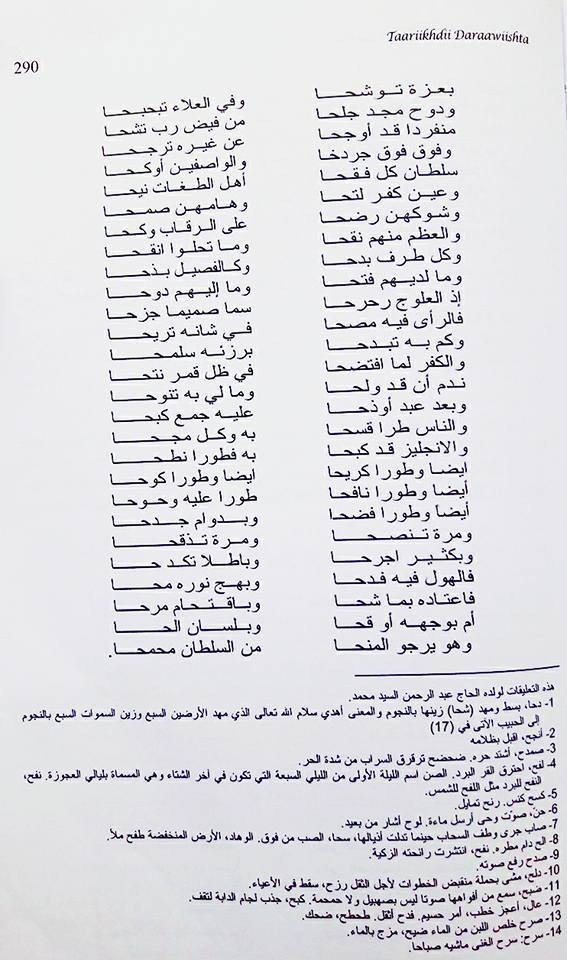 Taariikhdii Daraawiishta
290
بعزة توشحا وفي العلاء تبحبحا
ودوح مجد جلحا من فيض رب تشحا
منفردا قد أوجحا عن غيره ترجحا
وفوق فوق جردخا والواصفين أوكحا
سلطان كل فقحا أهل الطغات نيحا
وعين كفر لتحا وهامهن صمحا
وشوكهن رضحا على الرقاب وكحا
والعظم منهم نقحا وما تحلوا انقحا
وكل طرف بدحا وكالفصيل بذحا
وما لديهم فتحا وما إليهم دوحا
إذ العلوج رحرحا سما صميما جزحا
فالرأى فيه مصحا في شانه تريحا
وكم به تبدحا برزنه سلمحا
والكفر لما افتضحا في ظل قمر نتحا
ندم أن قد ولحا وما لي به تنوحا
وبعد عبد أوذحا عليه جمع كبحا
والناس طرا قسحا به وكل مجحا
والانجليز قد كبحا به فطورا نطحا
ايضا وطورا كريحا ايضا وطورا كوحا
أيضا وطورا نافحا طورا عليه وحوحا
أيضا وطورا فضحا وبدوام جدحا
ومرة تنصحا ومرة تذقحا
وبكثير اجرحا وباطلا تكدحا
فالهول فيه فدحا وبهج نوره محا
فاعتاده بما شحا وباقتحام مرحا
أم بوجهه أو قحا وبلسان الحا
وهو يرجو المنحا من السلطان محمحا.
هذه التعليقات لولده الحاج عبد الرحمن السيد محمد.
1- دحا، بسط ومهد (شحا) زينها بالنجوم والمعنى أهدي سلام الله تعالى الذي مهد الأرضين السبع وزين السموات السبع بالنجوم
إلى الحبيب الآتى في (17)
2- أنجح، اقبل بظلامه
3- صمدح، أشتد حره. ضحضح ترقرق السراب من شدة الحر.
4- لفح، احترق القر البرد. الصن اسم الليلة الأولى من الليلي السبعة التي تكون في آخر الشتاء وهي المسماة بليالي العجوزة. نفح،
النفح للبرد مثل اللفح للشمس.
5- كسح كنس. رنح تمايل.
6- حن، صوّت وحى أرسل ماءة. لوح أشار من بعيد.
7- صاب جرى وطف السحاب حينما تدلت أذيالها، سحا، الصب من فوق. الوهاد، الأرض المنخفضة طفح ملأ.
8- الح دام مطره. نفح، انتشرت رائحته الزكية.
9- صدح رفع صوته.
10- دلح، مشى بحملة منقبض الخطوات لأجل الثقل رزح، سقط في الأعياء.
11- ضبح، سمع من أفواهها صوتا ليس بصهيل ولا حمحمة. كبح، جذب لجام الدابة لتقف.
12- عال، أعجز خطب، أمر جسيم. فدح أثقل. طحطح، ضحك.
13- صرح خلص اللبن من الماء ضيح، مزج بالماء.
14- سرح: سرح الغنى ماشيه صباحا.